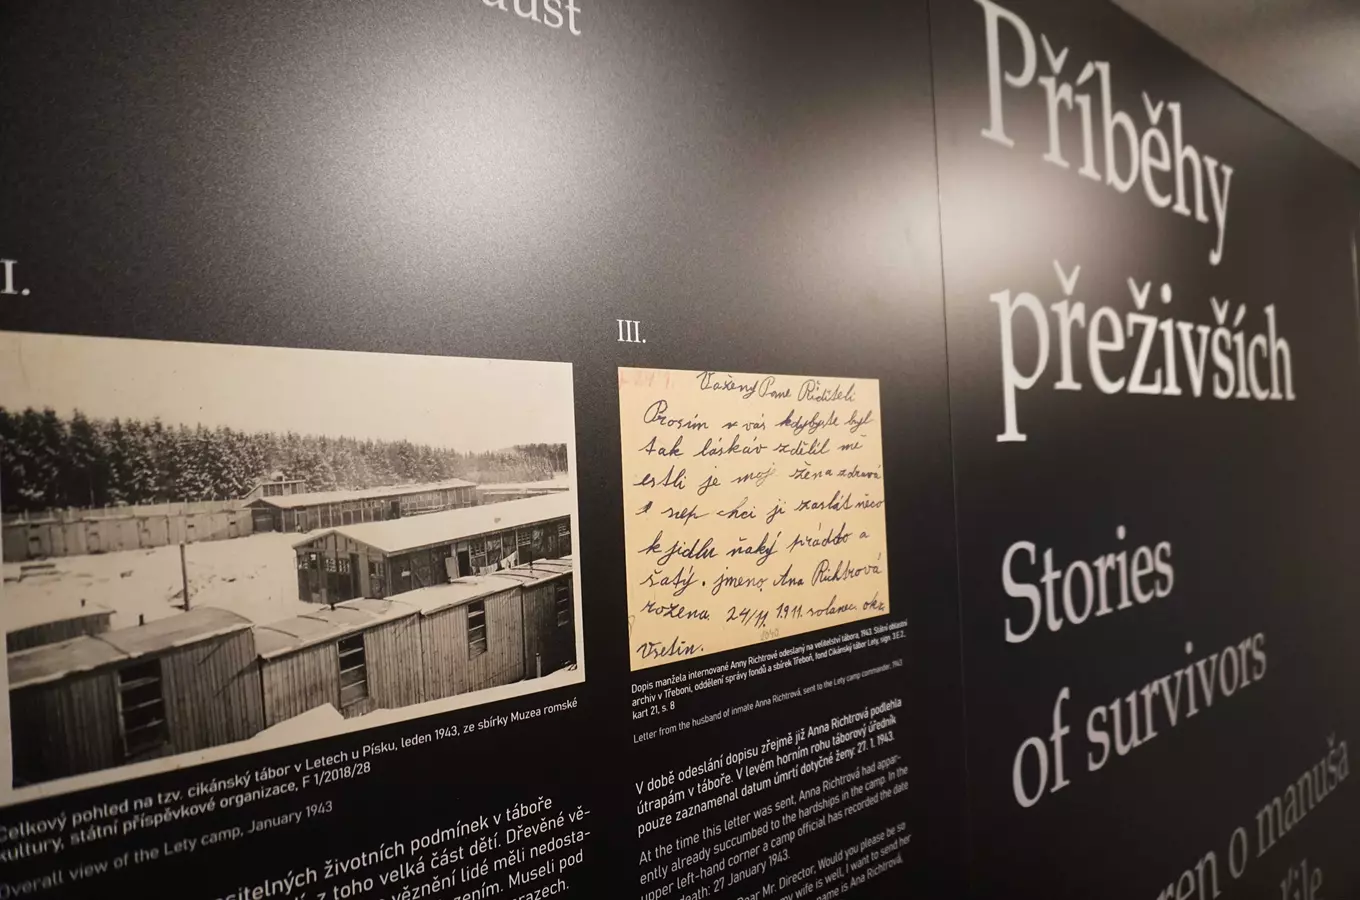 I.
Celkový pohled na tzv. cikánský tábor v Letech u Písku, leden 1943, ze sbírky Muzea romské
kultury, státní příspěvkové organizace, F 1/2018/28
Overall view of the Lety camp, January 1943
životních podmínek v táboře
z toho velká část dětí. Dřevěné vě-
věznění lidé měli nedosta-
Museli pod
III.
Važeny Pane Řiditeli
Prosím v vás kdybyste byl
tak láskáv zdělil mě
estli je moj žena zdravá
nep chci ji zaslát něco
k jidlu ňaký prádlo a
šatý. jmeno Ana Richtrová
rozena 24/11 1911 solanec okr.
Vsetin.
Dopis manžela internované Anny Richtrové odeslaný na velitelství tábora, 1943. Státní oblastní
archiv v Třeboni, oddělení správy fondů a sbírek Třeboň, fond Cikánský tábor Lety, sign. 3E2.
kart 21, s. 8
Letter from the husband of inmate Anna Richtrová, sent to the Lety camp commander, 1943
V době odeslání dopisu zřejmě již Anna Richtrová podlehla
útrapám v táboře. V levém horním rohu táborový úředník
pouze zaznamenal datum úmrtí dotyčné ženy: 27. 1. 1943.
At the time this letter was sent, Anna Richtrová had appar-
ently already succumbed to the hardships in the camp. In the
upper left-hand corner a camp official has recorded the date
death: 27 January 1943.
Dear Mr. Director, Would you please be so
my wife is well, I want to send her
name is Ana Richtrová,
Příběhy
přeživších
Stories
of survivors
o manuša